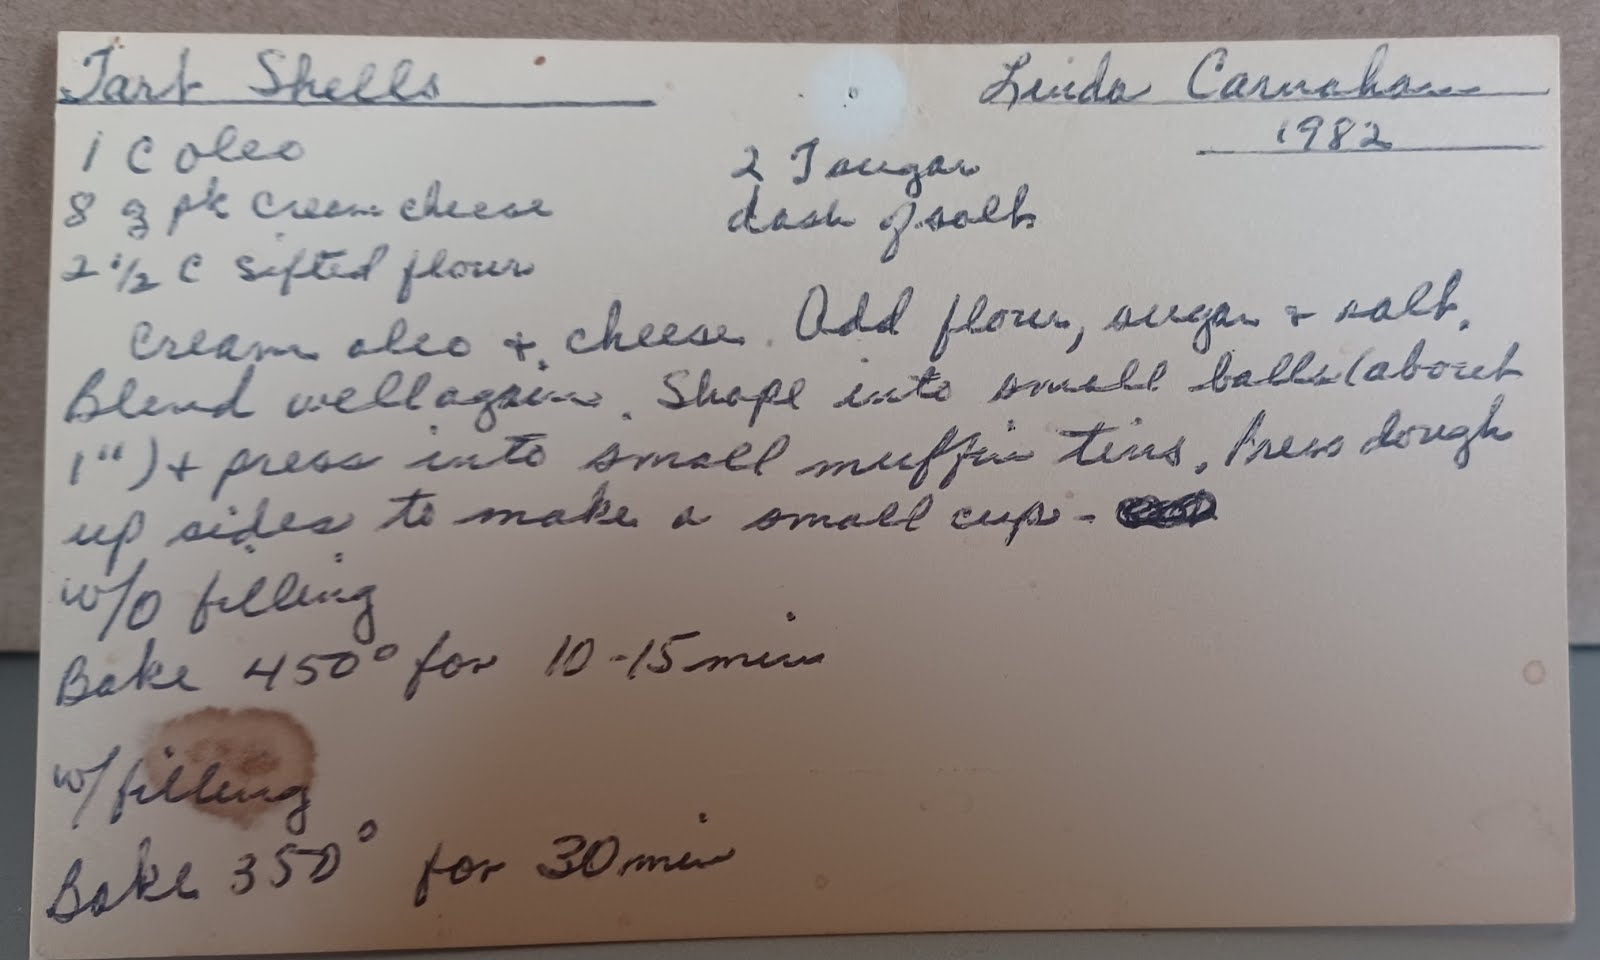 Tart Shells
Linda Carnahan
1982
1 C oleo
2 T sugar
8 oz pk cream cheese
dash of salt
2 1/2 C sifted flour
Cream oleo + cheese. Add flour, sugar + salt.
Blend well again. Shape into small balls (about
1") + press into small muffin tins. Press dough
up sides to make a small cup -
w/o filling
Bake 450° for 10-15 min
w/ filling
Bake 350° for 30 min